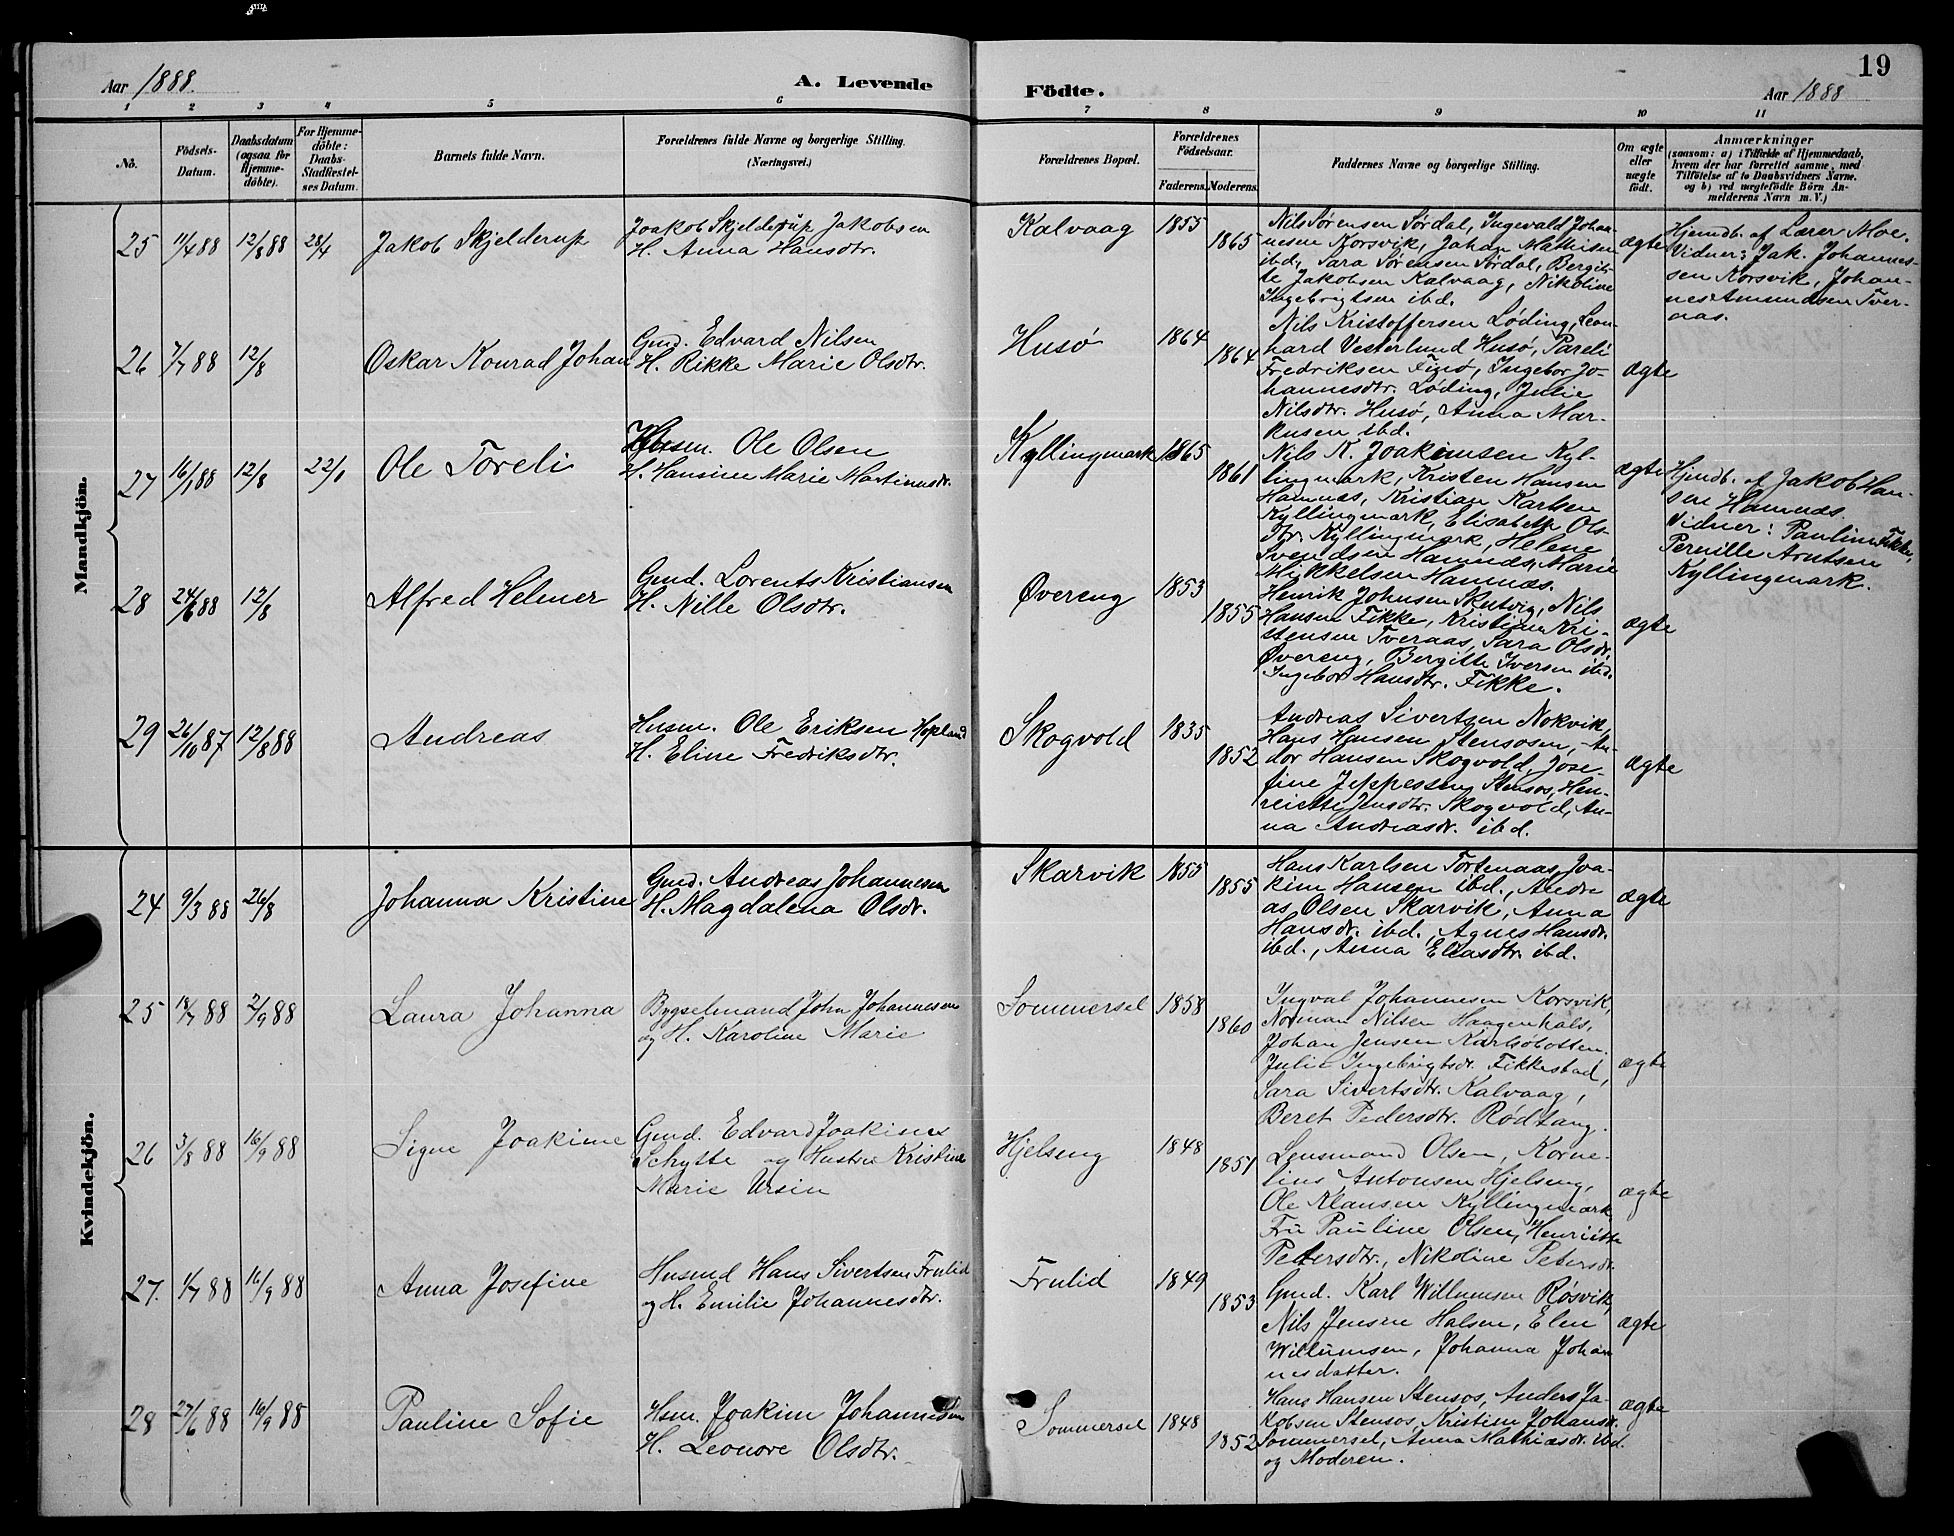 19
Aar 1888. A. Levende Födte. Aar 1888
1 2 3 4 5 6 7 8 9 10 11
No. Födsels-Datum. Daabsdatum (ogsaa for Hjemme-döbte). For Hjemme-döbte: Daabs-Stadfæstel-ses Datum. Barnets fulde Navn. Forældrenes fulde Navne og borgerlige Stilling. (Næringsvei.) Forældrenes Bopæl. Forældrenes Födselsaar. Faderens. Moderens. Faddernes Navne og borgerlige Stilling. Om ægte eller uægte födt. Anmærkninger (saasom: a) i Tilfælde af Hjemmedaab, hvem der har forrettet samme, med Tilföielse af to Daabsvidners Navne, og b) ved uægtefödte Börn An-melderens Navn m. V.)
Mandkjön.
25 11/4 88 12/8 88 28/4 Jakob Skjelderup
Joakob Skjelderup Jakobsen
H. Anna Hansdtr.
Kalvaag 1855 1865
Nils Sørensen Sørdal, Ingevald Johan-
nesen Korsvik, Johan Mathisen
ibd, Sara Sørensen Sørdal, Bergit-
te Jakobsen Kalvaag, Nikoline
Ingebrigtsen ibd.
ægte
Hjemdb. af Lærer Moe.
Vidner: Jak. Johannes-
sen Korsvik, Johan-
nes Amundsen Tver-
aas.
26 7/7 88 12/8 Oskar Konrad Johan
Gmd. Edvard Nilsen
H. Rikke Marie Olsdtr.
Husø 1864 1864
Nils Kristoffersen Løding, Leon-
hard Vesterlund Husø, Pareli
Fredriksen Finø, Ingebor Jo-
hannesdtr. Løding, Julie
Nilsdtr. Husø, Anna Mar-
kusen ibd.
ægte
27 16/1 88 12/8 22/1 Ole Toreli
Ole Olsen
H. Hansine Marie Martinusdr.
Kyllingmark 1865 1861
Nils K. Joakimsen Kyl-
lingmark, Kristen Hansen
Hamnæs, Kristian Karlsen
Kyllingmark, Elisabeth Ols-
dtr. Kyllingmark, Helene
Svendsen Hamnæs, Marie
Mikkelsen Hamnæs.
ægte
Hjmdb. af Jakob Han-
sen Hamnæs.
Vidner: Pauline Fikke,
Pernille Arntsen
Kyllingmark.
28 24/6 88 12/8 Alfred Helmer
Gmd. Lorents Kristiansen
H. Nille Olsdtr.
Øvereng 1853 1855
Henrik Johnsen Skutvig, Nils
Hansen Fikke, Kristian Kri-
stensen Tveraas, Sara Olsdr.
Øvereng, Bergitte Iversen ibd.
Ingebor Hansdtr. Fikke.
ægte
29 26/10 87 12/8 88 Andreas
Husm. Ole Eriksen Hopland
H. Eline Fredriksdtr.
Skogvold 1835 1852
Andreas Sivertsen Nokvik,
Hans Hansen Stensosen, An-
dor Hansen Skogvold, Jose-
fine Jeppesen Stensos, Hen-
reiette Jensdtr. Skogvold, An-
na Andreasdr. ibd.
ægte
Kvindekjön.
24 9/3 88 26/8 Johanna Kristine
Gmd. Andreas Johannesen
H. Magdalena Olsdr.
Skarvik 1855 1855
Hans Karlsen Tortenaas, Joa-
kim Hansen ibd., Andre
as Olsen Skarvik, Anna
Hansdr. ibd. Agnes Hansdr.
ibd., Anna Eliasdtr. ibd.
ægte
25 18/7 88 2/9 88 Laura Johanna
Bygselmand John Johannesen
og H. Karoline Marie
Sommersel 1858 1860
Ingval Johannesen Korsvik,
Norman Nilsen Haagenhals,
Johan Jensen Karlsøbotten.
Julie Ingebrigtsdr. Fikkestad,
Sara Sivertsdtr. Kalvaag,
Beret Pedersdtr. Rødtang.
ægte
26 3/8 88 16/9 88 Signe Joakime
Gmd. Edvard Joakimes
Schytte og Hustru Kristine
Marie Ursin
Hjelseng 1848 1851
Lensmand Olsen, Korne-
lius Antonsen Hjelseng,
Ole Klausen Kyllingmark
Fru Pauline Olsen, Henriette
Petersdtr., Nikoline Petersdr.
ægte
27. 1/7 88 16/9 88 Anna Josefine
Husmd Hans Sivertsen Frulid
og H. Emilie Johannesdtr.
Frulid 1849 1853
Gmd. Karl Willumsen Røsvik,
Nils Jensen Halsen, Elen
Willumsen, Johanna Johan
nesdatter.
ægte
28 27/6 88 16/9 88 Pauline Sofie
Hsm. Joakim Johannesen
H. Leonore Olsdtr.
Sommersel 1848 1852
Hans Hansen Stensos, Anders Ja-
kobsen Stensos, Kristine Johansdr.
Sommersel, Anna Mathiasdr. ibd.
og Moderen.
ægte